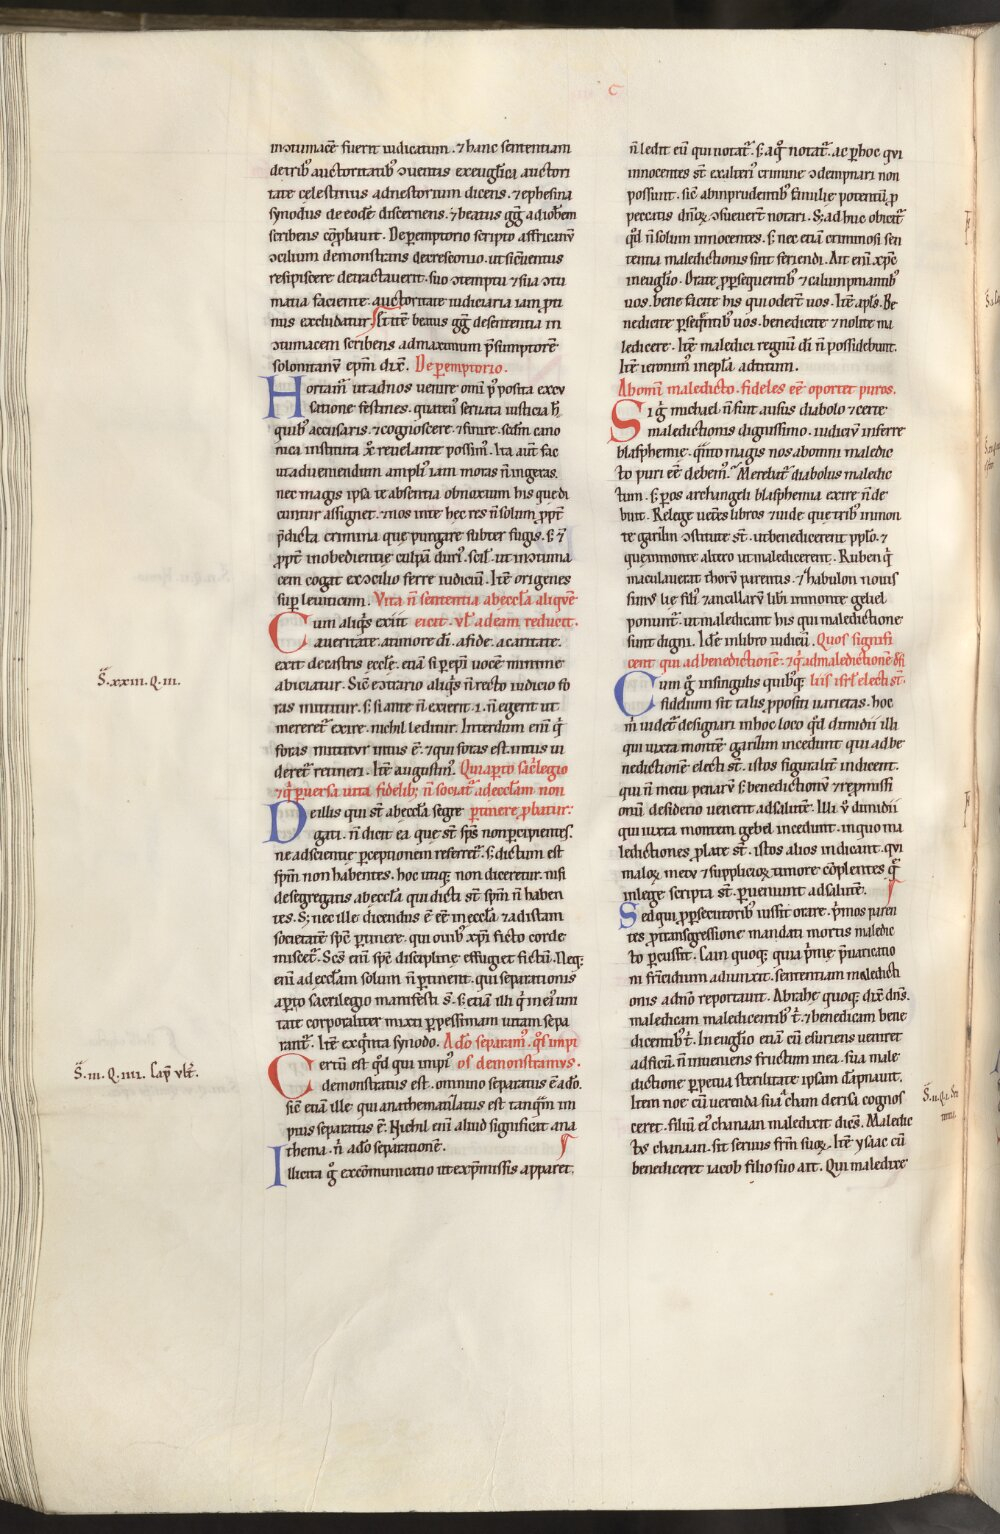 C
inↄtumacē fuerit iudicatum. ⁊ hanc sententiam
de trib; auctoritatib; ↄuentas ex euuglica auctori
tate celestinus ad nestorium dicens. ⁊ ephesina
synodus de eodē discernens. ⁊ beatus gg̃ ad iobem
scribens cōprobauit. De peremptorio scripto affricanū
ↄcilium demonstrans decresconio. ut si cuentus
resipiscere detractauerit. suo ↄtemptu ⁊ sua ↄtu
matia faciente. auctoritate iudiciaria iam pti
nus excludatur. Itē beatus gg̃ de sententia in
ↄtumacem scribens ad maximum p̄sumptorē
solonitanū ep̄m dix̄. De peremptorio.
Hortam̄ ut ad nos uenire omī p̄posita excu
satione festines. quaten̄ seruata iusticia ħ
quib; accusaris. ⁊ cognoscere. ⁊ finire. scđm cano
nica instituta xp̄o reuelante possim̄. Ita aut̄ fac
ut ad ueniendum ampli iam moras n̄ ingeras.
nec magis ipsa te absentia obnoxium his que di
cuntur assignet. ⁊ nos in te hec res n̄ solum ꝓpt̄
p̄dicta crimina que purgare subter fugis. s; ⁊
ꝓpt̄ inobedientię culpā duri. scil. ut inↄtuma
cem cogat ex ↄcilio ferre iudiciū. Itē origenes
sup leuiticum. Vita n̄ sententia ab eccla aliquē
Cum aliq̇s exiit eicit. ul ad eam reducit.
a ueritate. a timore dī. a fide. a caritate.
exit de castris ecclę. etiā si p ep̄i uocē minime
abiciatur. Sic̄ eↄtrario aliq̇s n̄ recto iudicio fo
ras mittitur. s; si ante n̄ exierit. i. n̄ egerit ut
mereret̄ exire. nichil leditur. Interdum eni q̇
foras mittitur intus ē. ⁊ qui foras est. intus ui
deret̄ retineri. Itē augustin̄. Qui apto sac̄legio
⁊ q̇ puersa uita fidelib; n̄ sociat̄ ad ecclam non
De illis qui st̄ ab eccla segre ptinere ꝓbatur.
gati. n̄ dicit ea que st̄ sp̄s non percipientes.
ne ad scientię perceptionem referret̄. s; dictum est
sp̄m non habentes. hoc utiq; non diceretur. nisi
de segregatis ab eccla qui dicti st̄ sp̄m n̄ haben
tes. S; nec ille dicendus ē eē in eccla ⁊ ad istam
societatē sp̄c ptinere. qui ouib; xp̄i ficto corde
miscet̄. Sc̄s eni sp̄c discipline effugiet fictū. Neq;
eni ad ecclam solum n̄ ptinent. qui separationis
apto sacrilegio manifesti s̄. s; etiā illi q̇ in ei unī
tate corporaliter mixti p pessimam uitam sepa
rant̄. Itē ex q̇nta synodo. A dō separam̄. q̇s impi
Certū est qđ qui impi os demonstramus.
demonstratus est. omnino separatus ē a dō.
sic̄ etiā ille qui anathematizatus est tanq̄m im
pius separatus ē. Nichil eni aliud significat ana
thema. n̄ a dō separationē.
Illicita g̊ excōmunicatio ut ex p̄missis apparet.
n̄ ledit eū qui notat̄. s; a q̊ notat̄. ac p hoc qui
innocentes st̄ ex alteri crimine ↄdempnari non
possunt. sic̄ ab inprudentib; familie potentū ꝓ
peccatis dn̄oꝝ ↄsueuert̄ notari. S; ad huc obicit̄
qđ n̄ solum innocentes. s; nec etiā criminosi sen
tentia maledictionis sint feriendi. Ait eni xp̄c
in euuglio. Orate ꝓ psequentib; ⁊ calumpniantib;
uos. bene facite his qui odert̄ uos. Itē apls. Be
nedicite pseq̄ntib; uos. benedicite ⁊ nolite ma
ledicere. Itē maledici regnū dī n̄ possidebunt.
Itē ieronim̄ in epla ad titum.
Ab omi maledicto. fideles eē oportet puros.
Si g̊ michael n̄ fuit ausus diabolo ⁊ certe
maledictionis dignissimo. iudiciū inferre
blasphemie. q̄nto magis nos ab omni maledic
to puri eē debem̄. Merebat̄ diabolus maledic
tum. s; p os archangeli blasphemia exire n̄ de
buit. Relege ueteres libros ⁊ uide que trib; in mon
te garizin ↄstitute st̄. ut benedicerent pplo. ⁊
que in monte altero ut maledicerent. Ruben q̇
maculauerat thorū parentis. ⁊ zabulon nouis
sim lię fili ⁊ ancillarū libi in monte gebel
ponunt̄. ut maledicant his qui maledictione
sunt digni. Idē in libro iudicū. Quos signifi
cent qui ad benedictionē. ⁊ q̇ ad maledictionē dā
Cum g̊ in singulis quib;q; liis isrl electi st̄.
fidelium sit talis ꝓpositi uarietas. hoc
m̄ uidet̄ designari in hoc loco qđ dimidii illi
qui iuxta montē garizim incedunt qui ad be
nedictionē electi st̄. istos figuralit̄ indicent.
qui n̄ metu penarū s; benedictionū ⁊ repmissi
onū desiderio uenerīt ad salutē. Illi ū dimidii
qui iuxta montem gebel incedunt. in quo ma
ledictiones ꝓlate st̄. istos alios indicant. qui
maloꝝ metu ⁊ supplicioꝝ timore cōplentes q̄
in lege scripta st̄. pueniunt ad salutē.
Sed qui ꝓ psecutorib; iussit orare. p̄mos paren
tes ꝓ transgressione mandati mortis maledic
to pcussit. Cain quoq; quia p̄mę p̄uaricatio
ni fr̄icidium adiunxit. sententiam maledicti
onis a dn̄o reportauit. Abrahę quoq; dix̄ dn̄s.
maledicam maledicentib; t̄. ⁊ benedicam bene
dicentib; t̄. In euuglio etiā cū esuriens uenir&
ad ficū. n̄ inueniens fructum in ea. sua male
dictione ppetua sterilitate ipsam dāpnauit.
Item noe cū uerenda sua a cham derisa cognos
ceret. filiū ei chanaan maledixit dicēs. Maledic
tus chanaan. sit seruus fr̄m suoꝝ. Itē ysaac cū
benediceret iacob filio suo ait. Qui maledixe
S̄. xxiii. Q. iii.
S̄. iii. Q. iiii. Cap̄ ult̄.